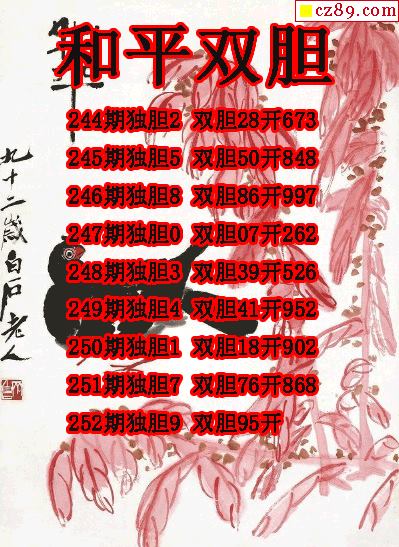 cz89.com
和平双胆
244期独胆2 双胆28开673
245期独胆5 双胆50开848
246期独胆8 双胆86开997
247期独胆0 双胆07开262
248期独胆3 双胆39开526
249期独胆4 双胆41开952
250期独胆1 双胆18开902
251期独胆7 双胆76开868
252期独胆9 双胆95开
九十二岁白石老人